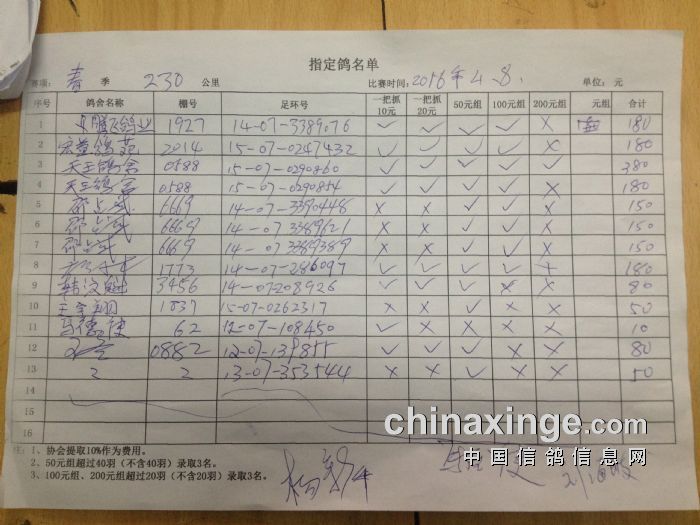 指定鸽名单
赛项: 春 季 230 公里 比赛时间: 2016年4.8. 单位: 元
序号 鸽舍名称 棚号 足环号 一把抓10元 一把抓20元 50元组 100元组 200元组 元组 合计
1 1927 14-07-3389076 ✓ ✓ ✓ ✓ × 180
2 2014 15-07-0247432 ✓ ✓ ✓ ✓ × 180
3 天王鸽舍 0588 15-07-0290860 ✓ ✓ ✓ ✓ ✓ 380
4 天王鸽舍 0588 15-07-0290854 ✓ ✓ ✓ ✓ × 180
5 6669 14-07-3390448 × × ✓ ✓ × 150
6 6669 14-07-3389621 × × ✓ ✓ × 150
7 6669 14-07-3389389 × × ✓ ✓ × 150
8 1773 14-07-286097 ✓ ✓ ✓ ✓ × 180
9 3456 14-07-208926 ✓ ✓ ✓ × × 80
10 王宝翔 1837 15-07-0262317 × × ✓ × × 50
11 马德俊 62 12-07-108450 ✓ × × × × 10
12 0882 12-07-139855 ✓ ✓ ✓ × × 80
13 13-07-353544 × × ✓ × × 50
14
15
16
注: 1、协会提取10%作为费用。
2、50元组超过40羽（不含40羽）录取3名。
3、100元组、200元组超过20羽（不含20羽）录取3名。
chinaxinge.com
中国信鸽信息网